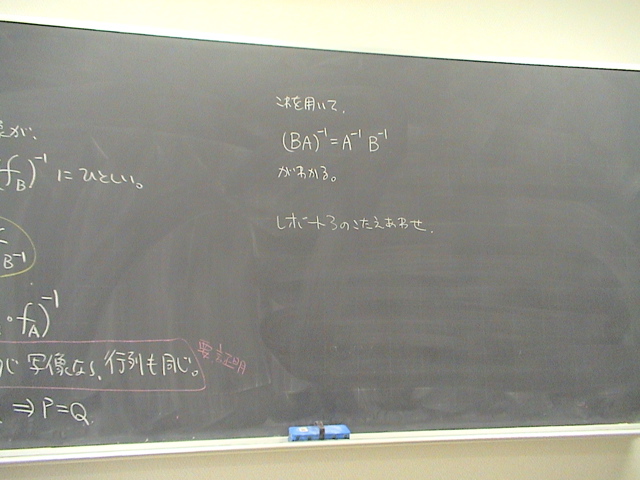 が、
(f_B)^{-1} にひとしい。
B^{-1}
∘ f_A)^{-1}
じ写像なら、行列も同じ。
要証明
⇒ P=Q
これを用いて、
(BA)^{-1} = A^{-1} B^{-1}
がわかる。
レポート3のこたえあわせ.